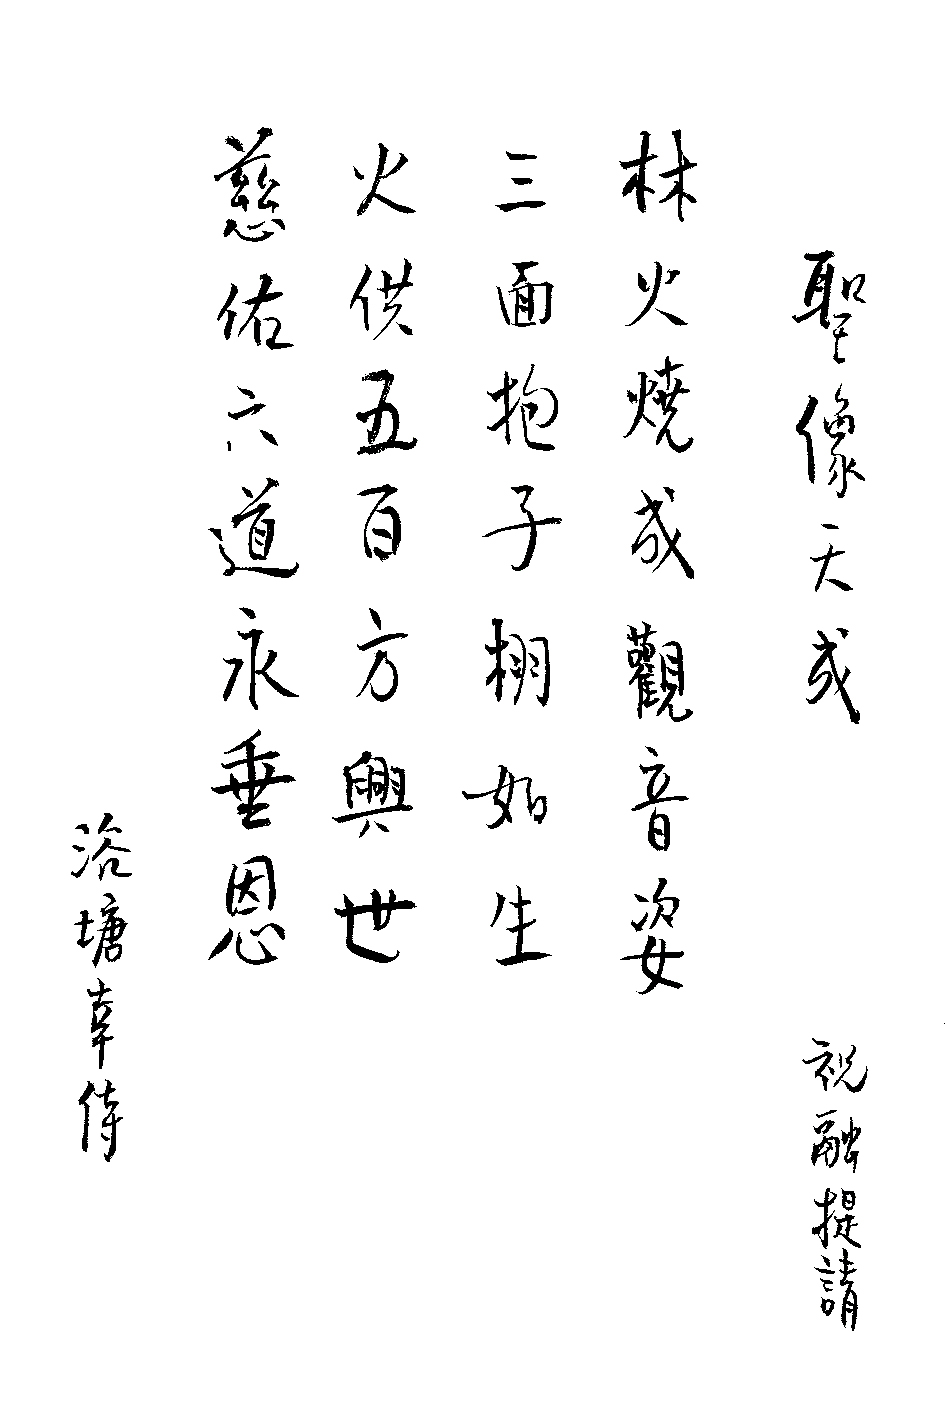 聖像天成
祝融提請
林火燒成觀音姿
三面抱子栩如生
火供五百方興世
慈佑六道永垂恩
浴塘幸侍